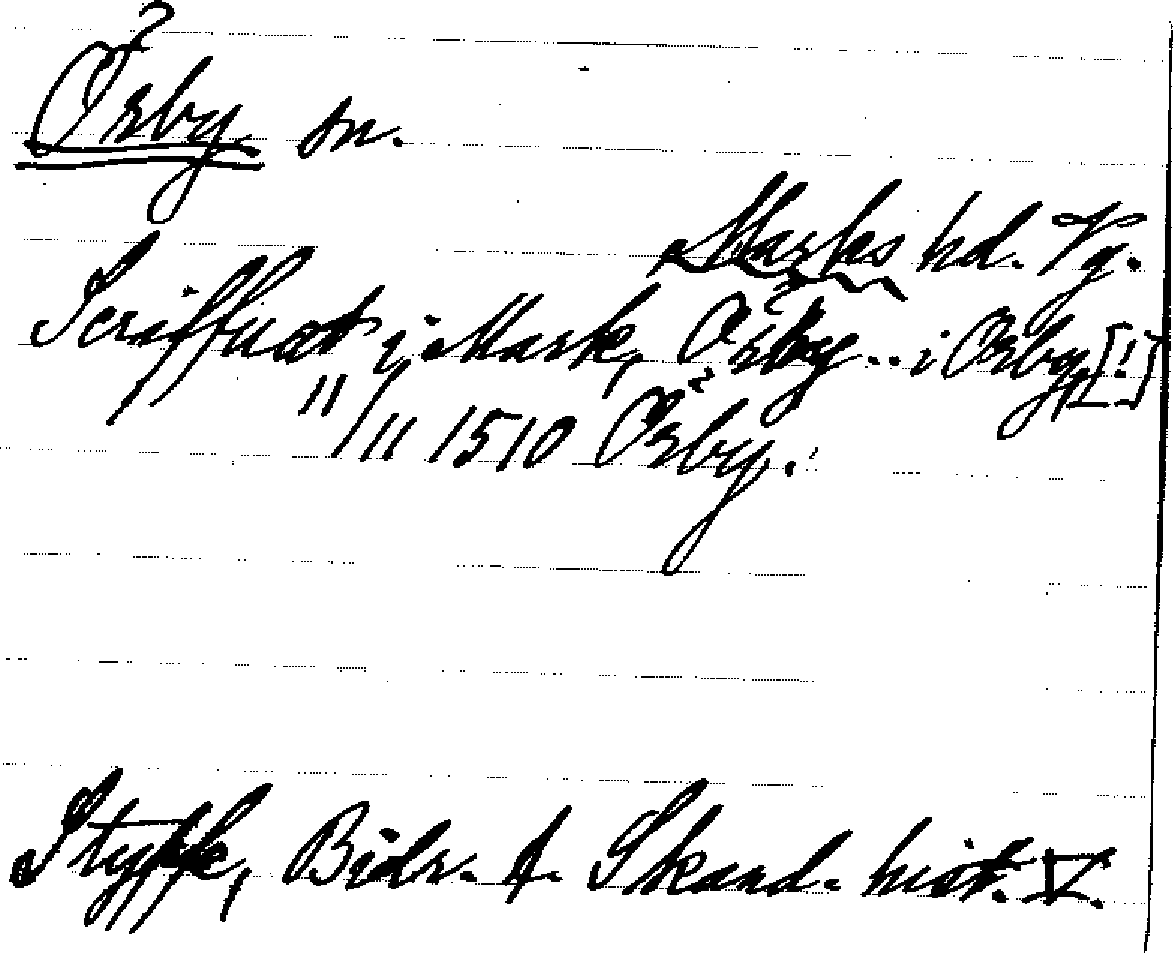 Örby sn.
Marks hd. Vg.
Scriffuat i Mark, Örby .. i Orby [!]
11/11 1510 Örby.
Styffe, Bidr. t. Skand. hist. V.